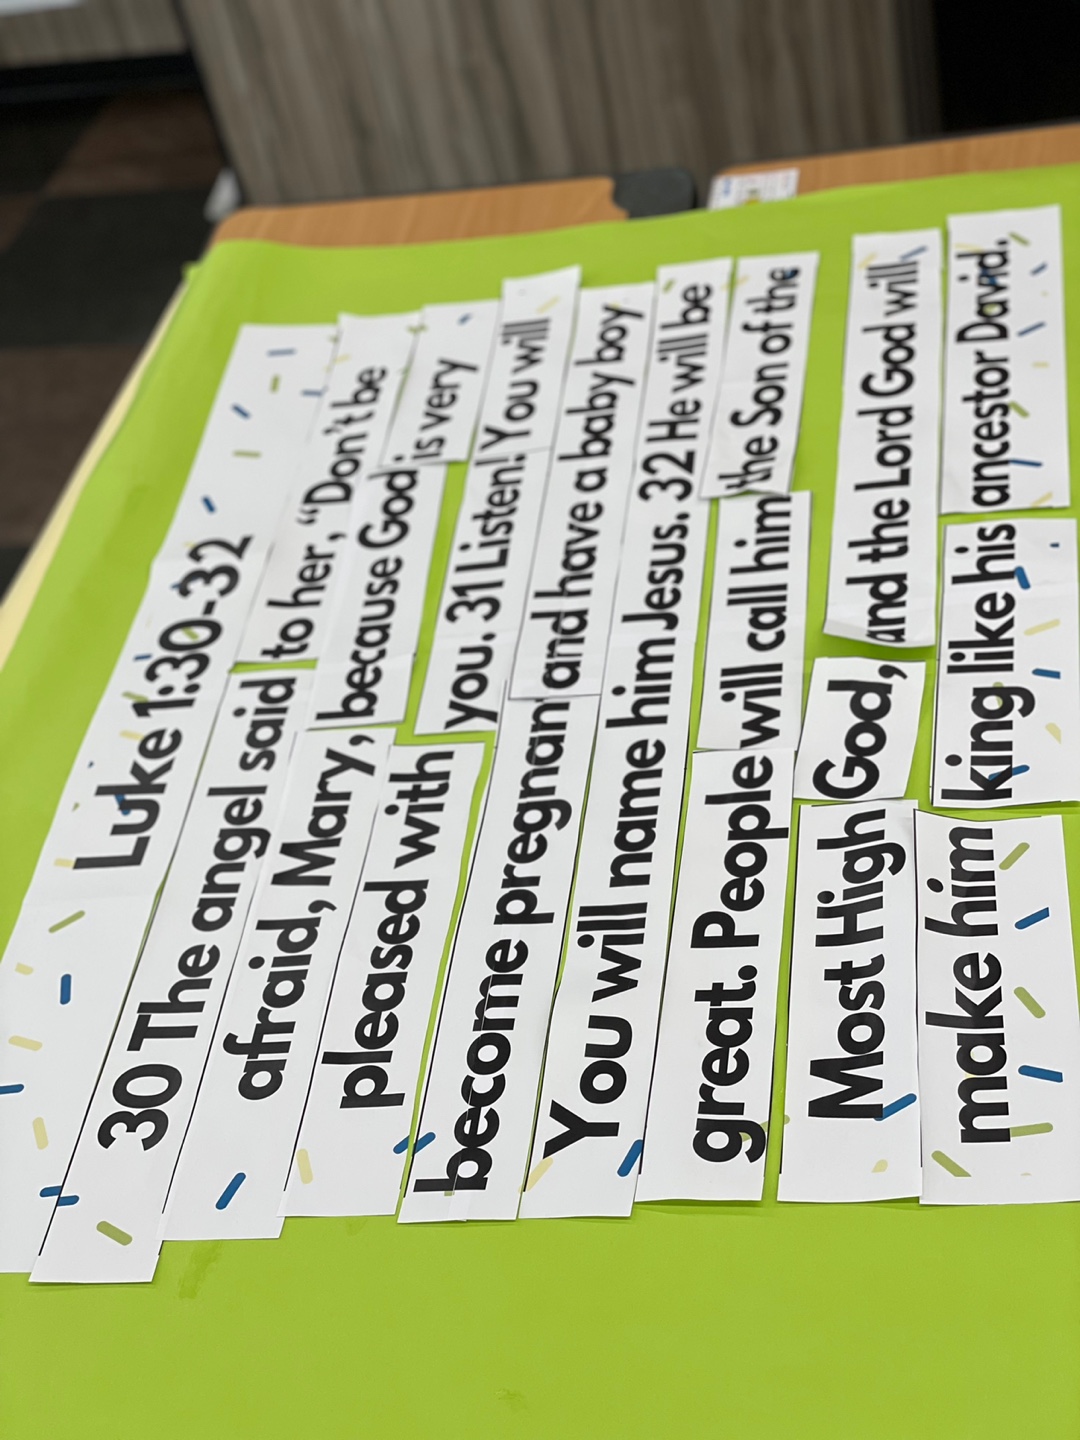 Luke 1:30-32
30 The angel said to her, “Don't be
afraid, Mary, because God is very
pleased with you. 31 Listen! You will
become pregnant and have a baby boy
You will name him Jesus. 32 He will be
great. People will call him the Son of the
Most High God, and the Lord God will
make him king like his ancestor David.